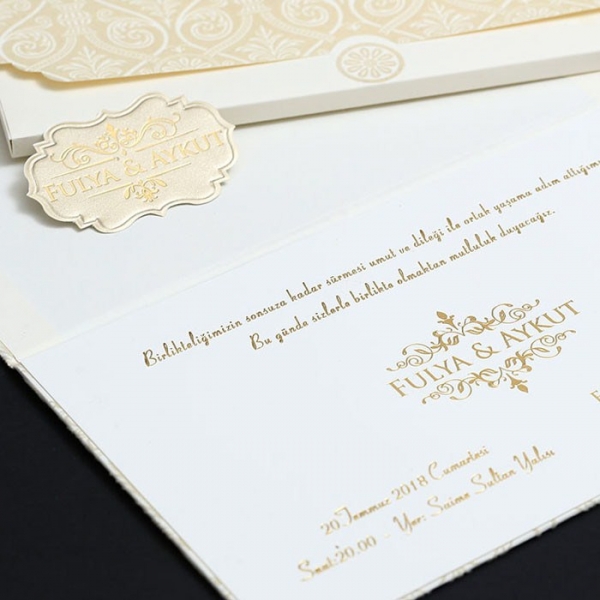 FULYA & AYKUT
Birlikteliğimizin sonsuza kadar sürmesi umut ve dileği ile ortak yaşama adım attığımız
Bu günde sizlerle birlikte olmaktan mutluluk duyacağız.
FULYA & AYKUT
20.Temmuz 2018 Cumartesi
Saat:20.00 - Yer: Saime Sultan Yalısı